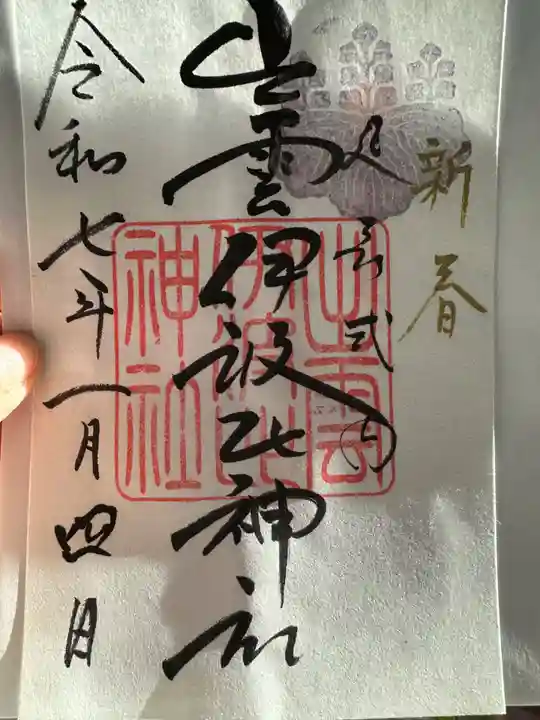 新春
延㐂式内
出雲伊波比神社
出雲
伊波比
神社
令和七年一月四日